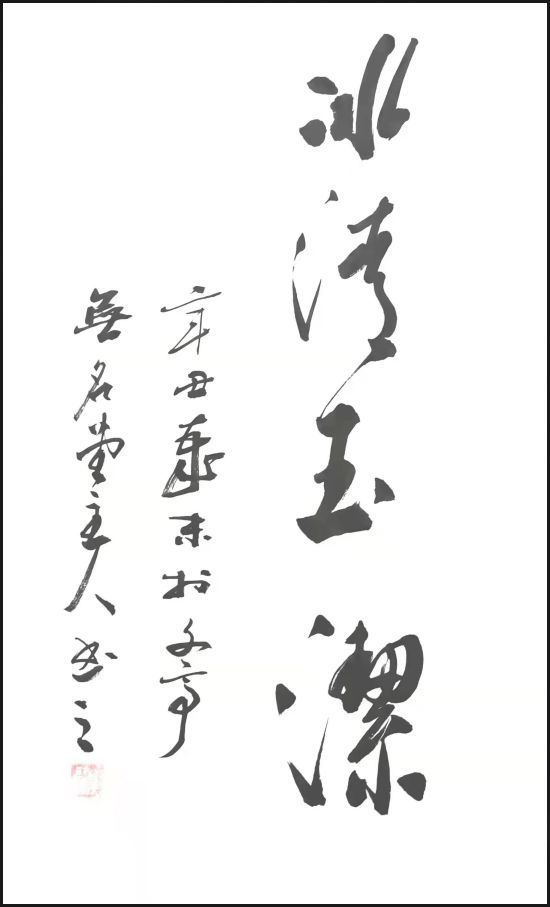 冰清玉潔
辛丑歲末於文亭
無名堂主人書之